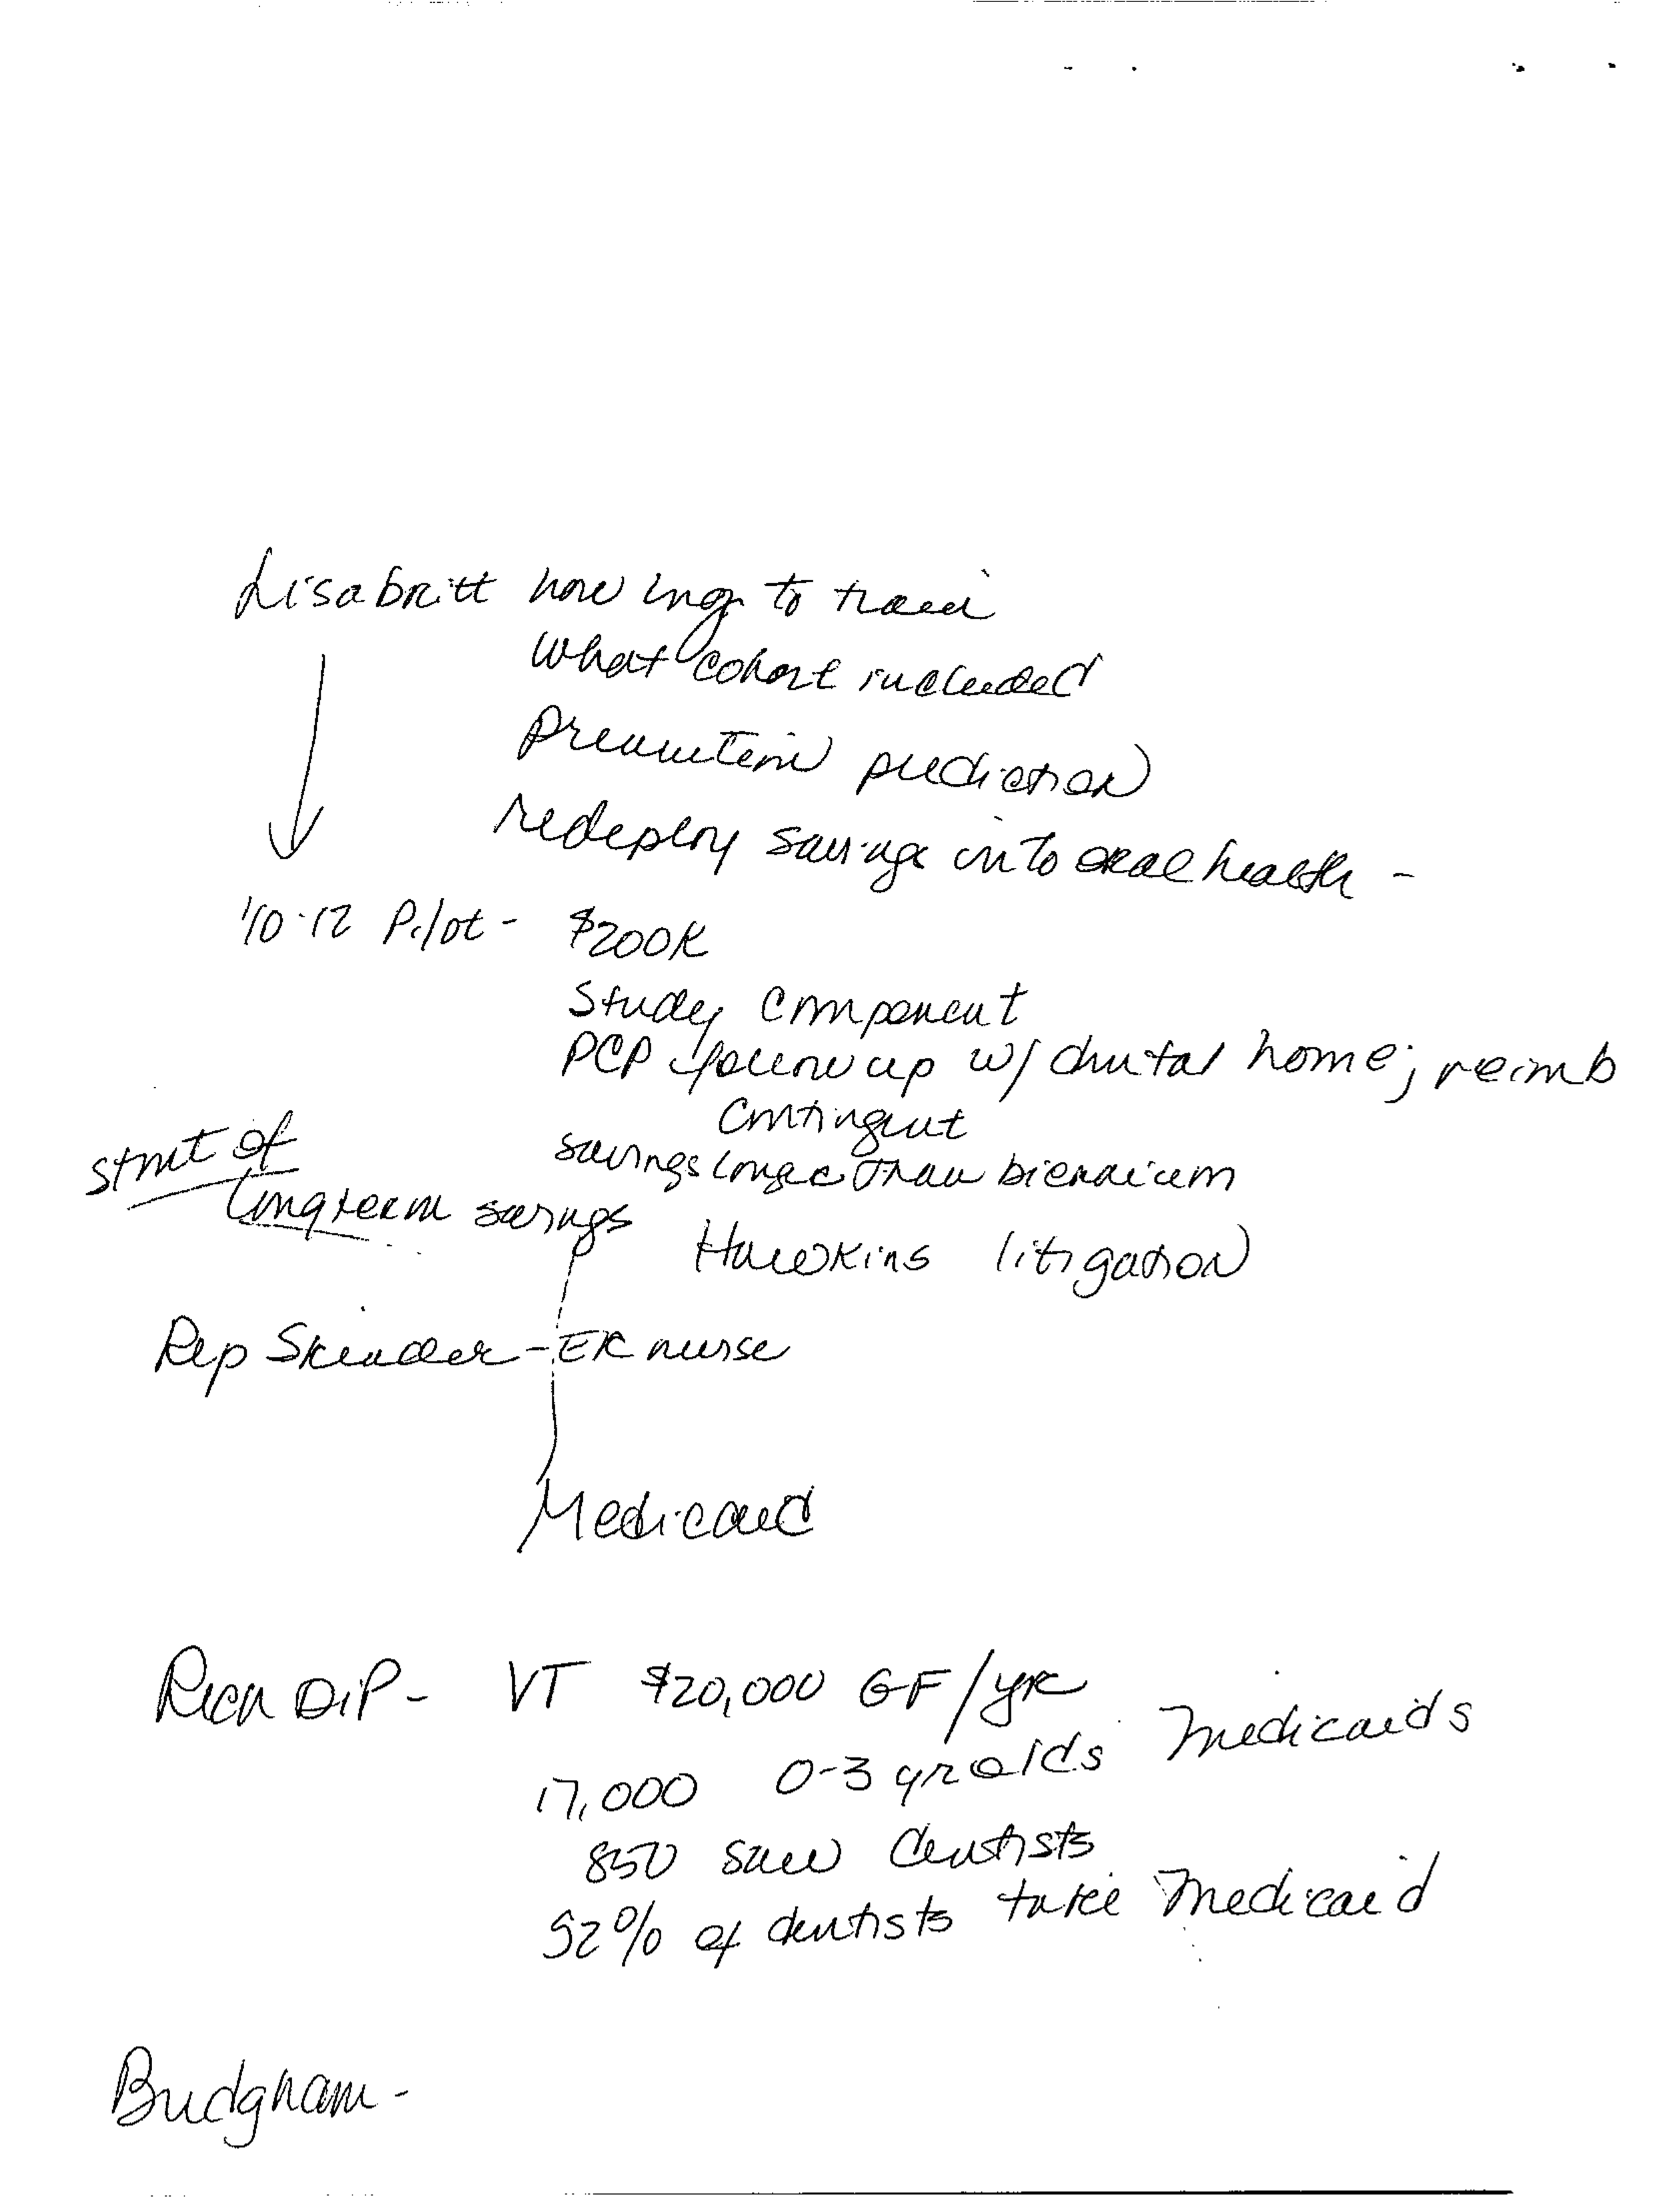 Lisabritt how long to train
What cohort included
Prevention prediction
redeploy savings into oral health -
'10-12 Pilot - $200K
Study component
PCP follow up w/ dental home; reimb
contingent
savings longer than biennium
stmt of
longterm savings
Hawkins litigation
Rep Skinder - ER nurse
Medicaid
Rich DiP - VT $20,000 GF/yr
17,000 0-3 yr olds Medicaids
850 saw dentists
52% of dentists take Medicaid